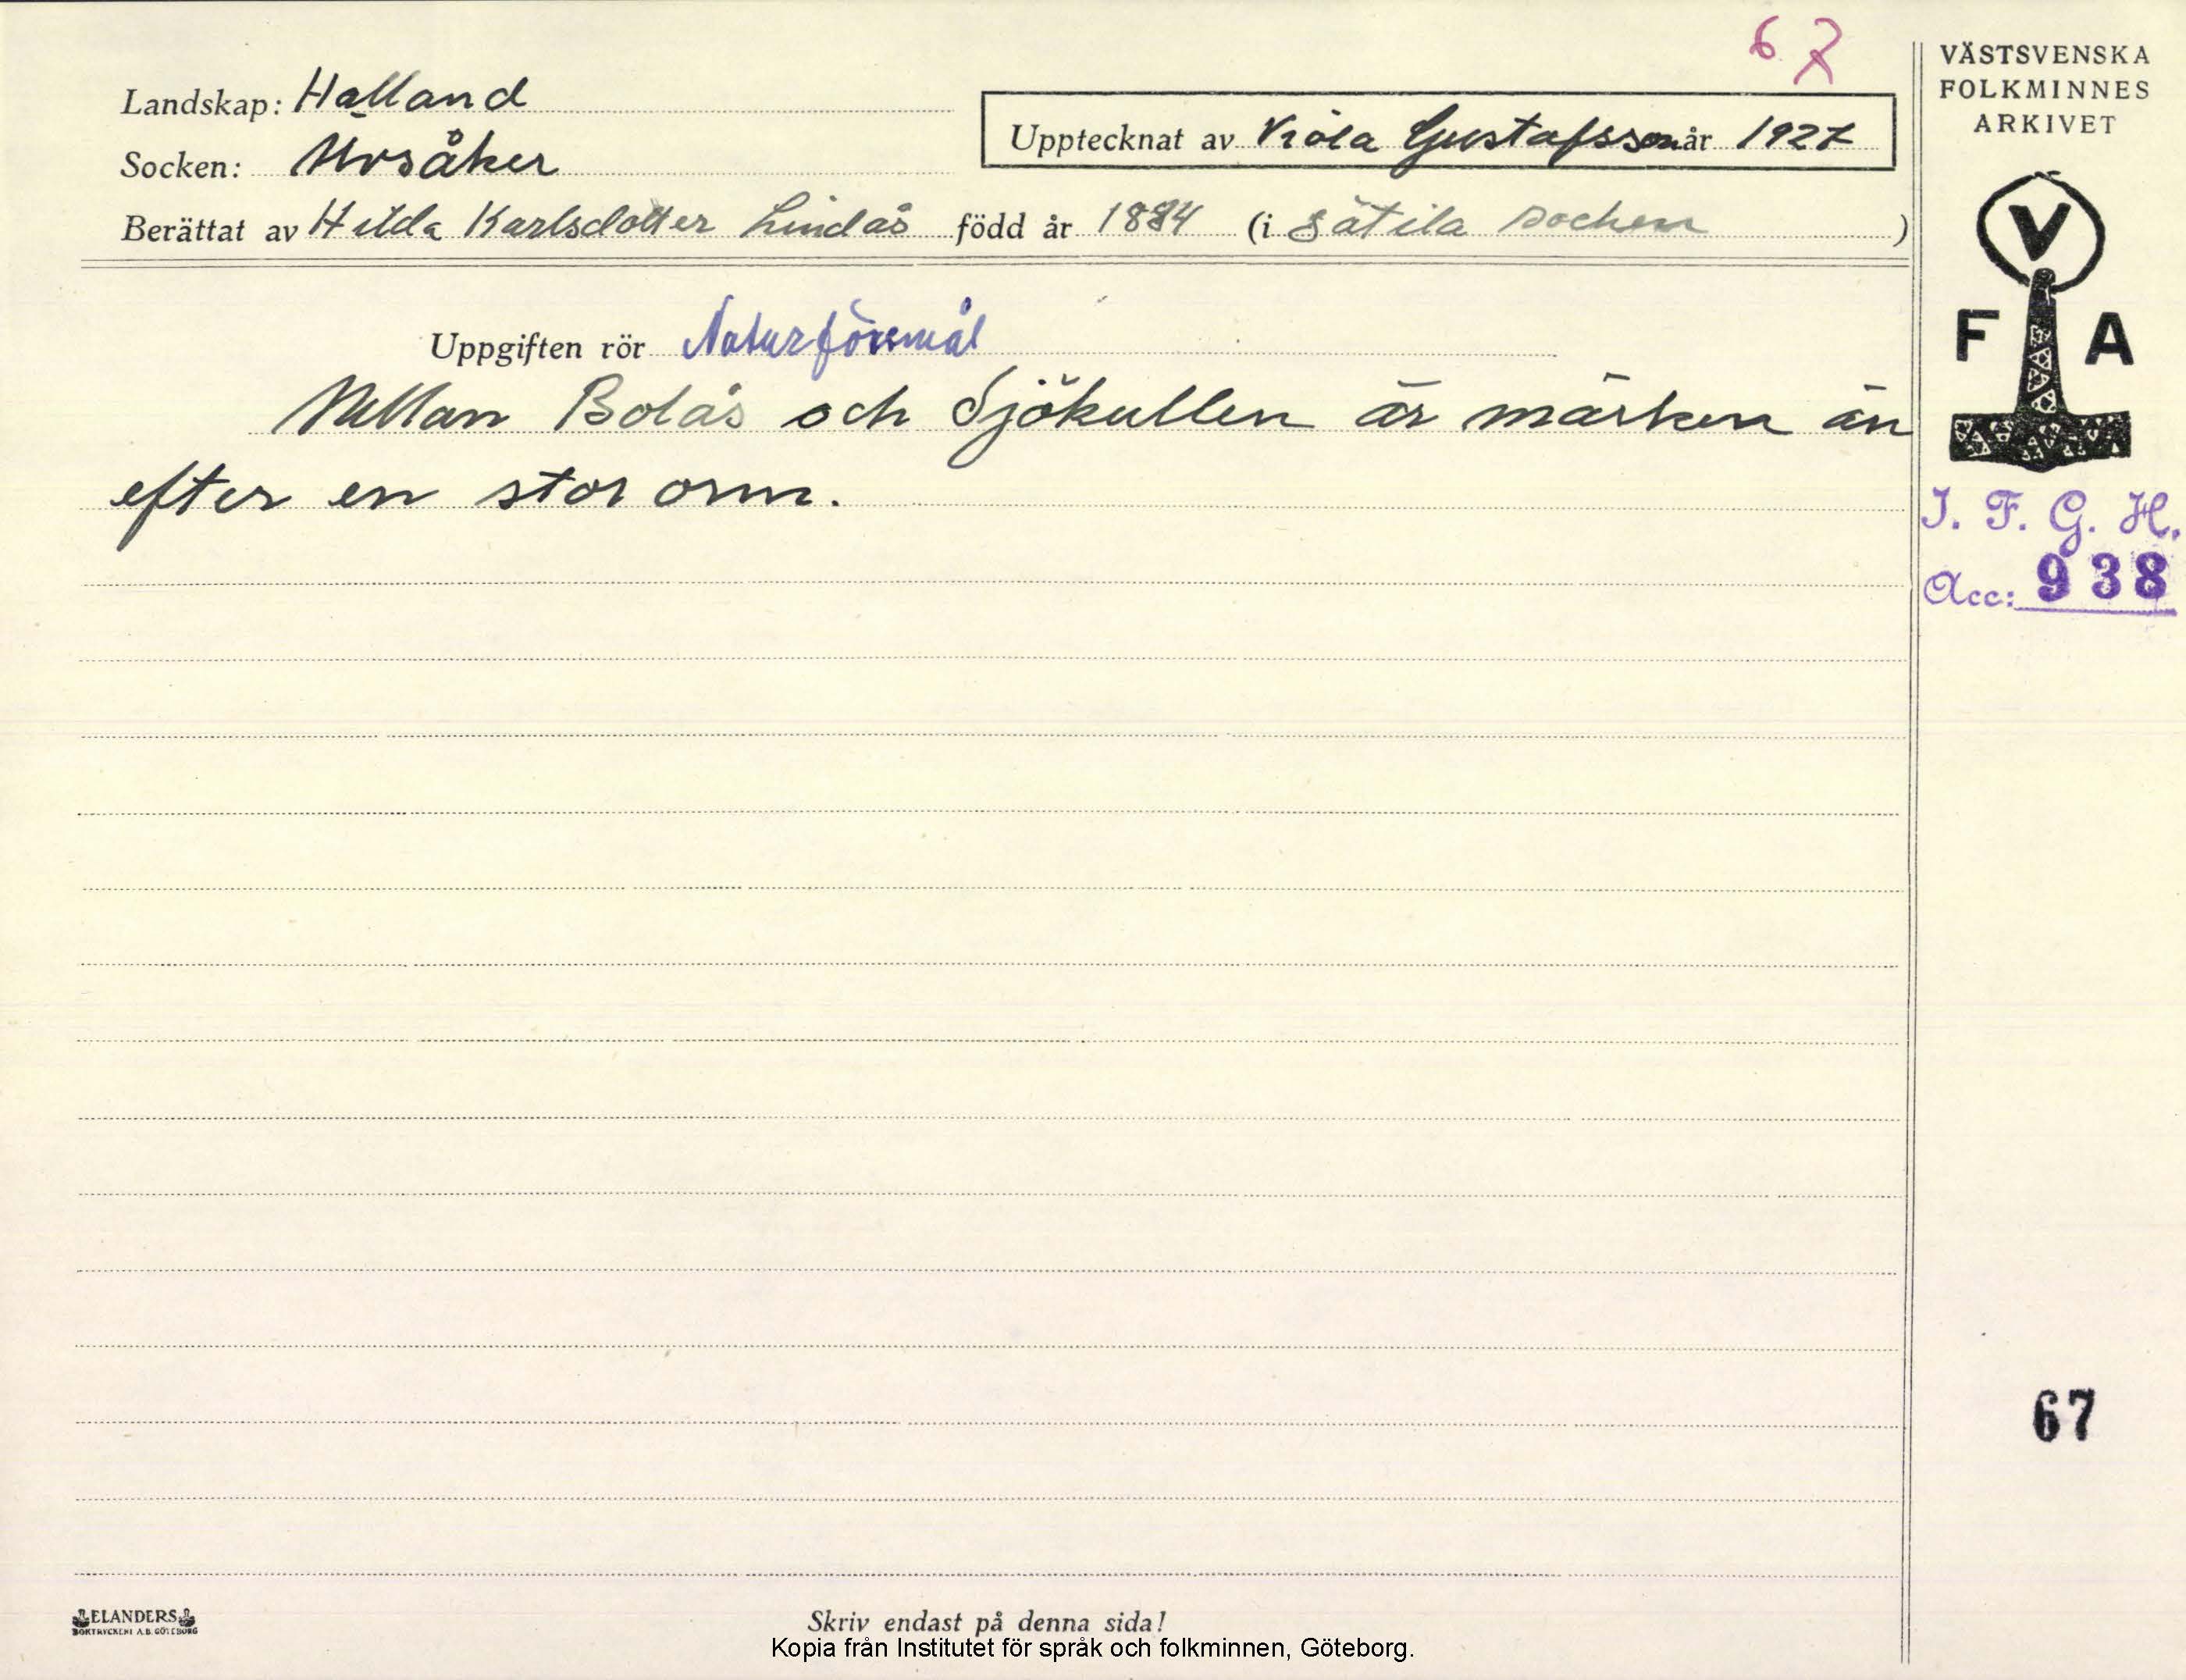 67
VÄSTSVENSKA
FOLKMINNES
ARKIVET
Landskap: Halland
Upptecknat av Viola Gustafsson år 1927
Socken: Ölvsåker
Berättat av Hilda Karlsdotter Lindås född år 1884 (i Sätila socken )
V
F A
Uppgiften rör Naturföremål
Mellan Bolås och Sjökullen är märken än
efter en stor orm.
I. F. G. H.
Acc: 938
67
ELANDERS
BOKTRYCKERI A.B. GÖTEBORG
Skriv endast på denna sida!
Kopia från Institutet för språk och folkminnen, Göteborg.